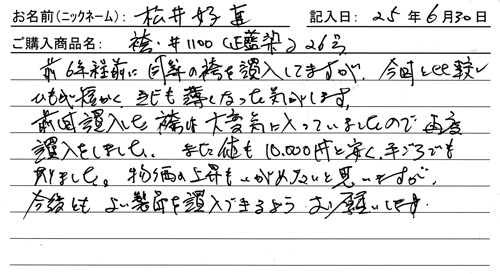 お名前(ニックネーム): 松井好直 記入日: 25年6月30日
ご購入商品名: 袴・#1100(正藍染)26号
前6年程前に同等の袴を購入してますが、今回と比較し
ひもが短かく、生地も薄くなった気がします。
前回購入した袴は大変気に入っていましたので再度
購入をしました。また値も10,000円と安く、手ごろでも
ありました。物価の上昇もいがめないと思いますが、
今後とも よい製品を購入できるよう お願いします。